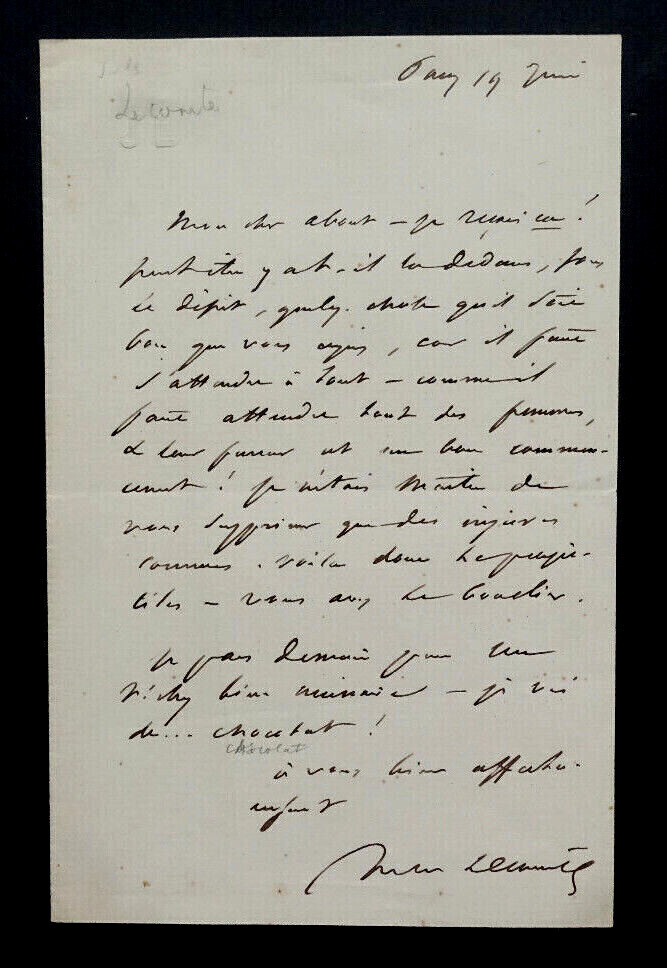 Jules
Lecomte
Paris 19 Juin
Mon cher about – je reçois ceci !
peut être y a t-il là dedans, sous
le dépit, quelq. chose qu'il soit
bon que vous ayez, car il faut
s'attendre à tout – comme il
faut attendre tout des femmes,
& leur fureur est un bon commen-
cement ! je n'étais maître de
vous supprimer que des injures
connues. voilà donc le projec-
tiles – vous avez le bouclier.
je pars demain pour
Vichy bien – je vis
de... chocolat !
chocolat
à vous bien affectu-
eusement
Jules Lecomte